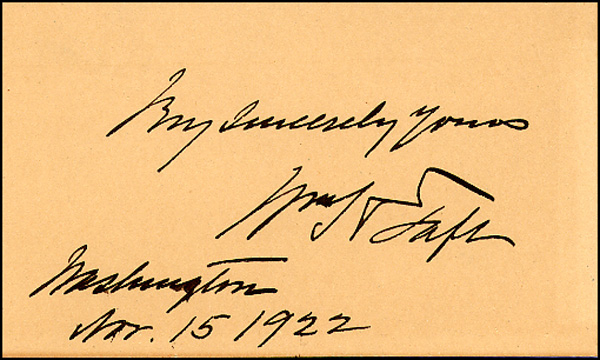 Very Sincerely Yours
Wm H Taft
Washington
Nov. 15 1922